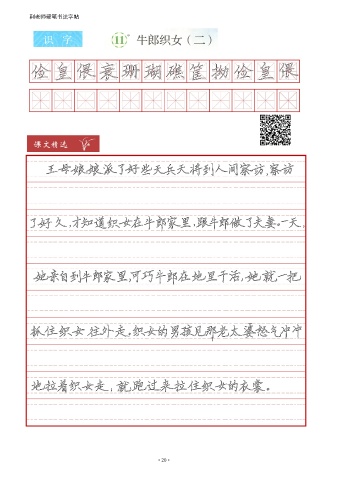 副老师硬笔书法字帖
识 字
11 牛郎织女（二）
俭 皇 偎 衰 珊 瑚 礁 筐 拗 俭 皇 偎
课文精选
王母娘娘派了好些天兵天将到人间察访,察访
了好久,才知道织女在牛郎家里,跟牛郎做了夫妻。一天,
她亲自到牛郎家里,可巧牛郎在地里干活,她就一把
抓住织女往外走。织女的男孩见那老太婆怒气冲冲
地拉着织女走，就跑过来拉住织女的衣裳。